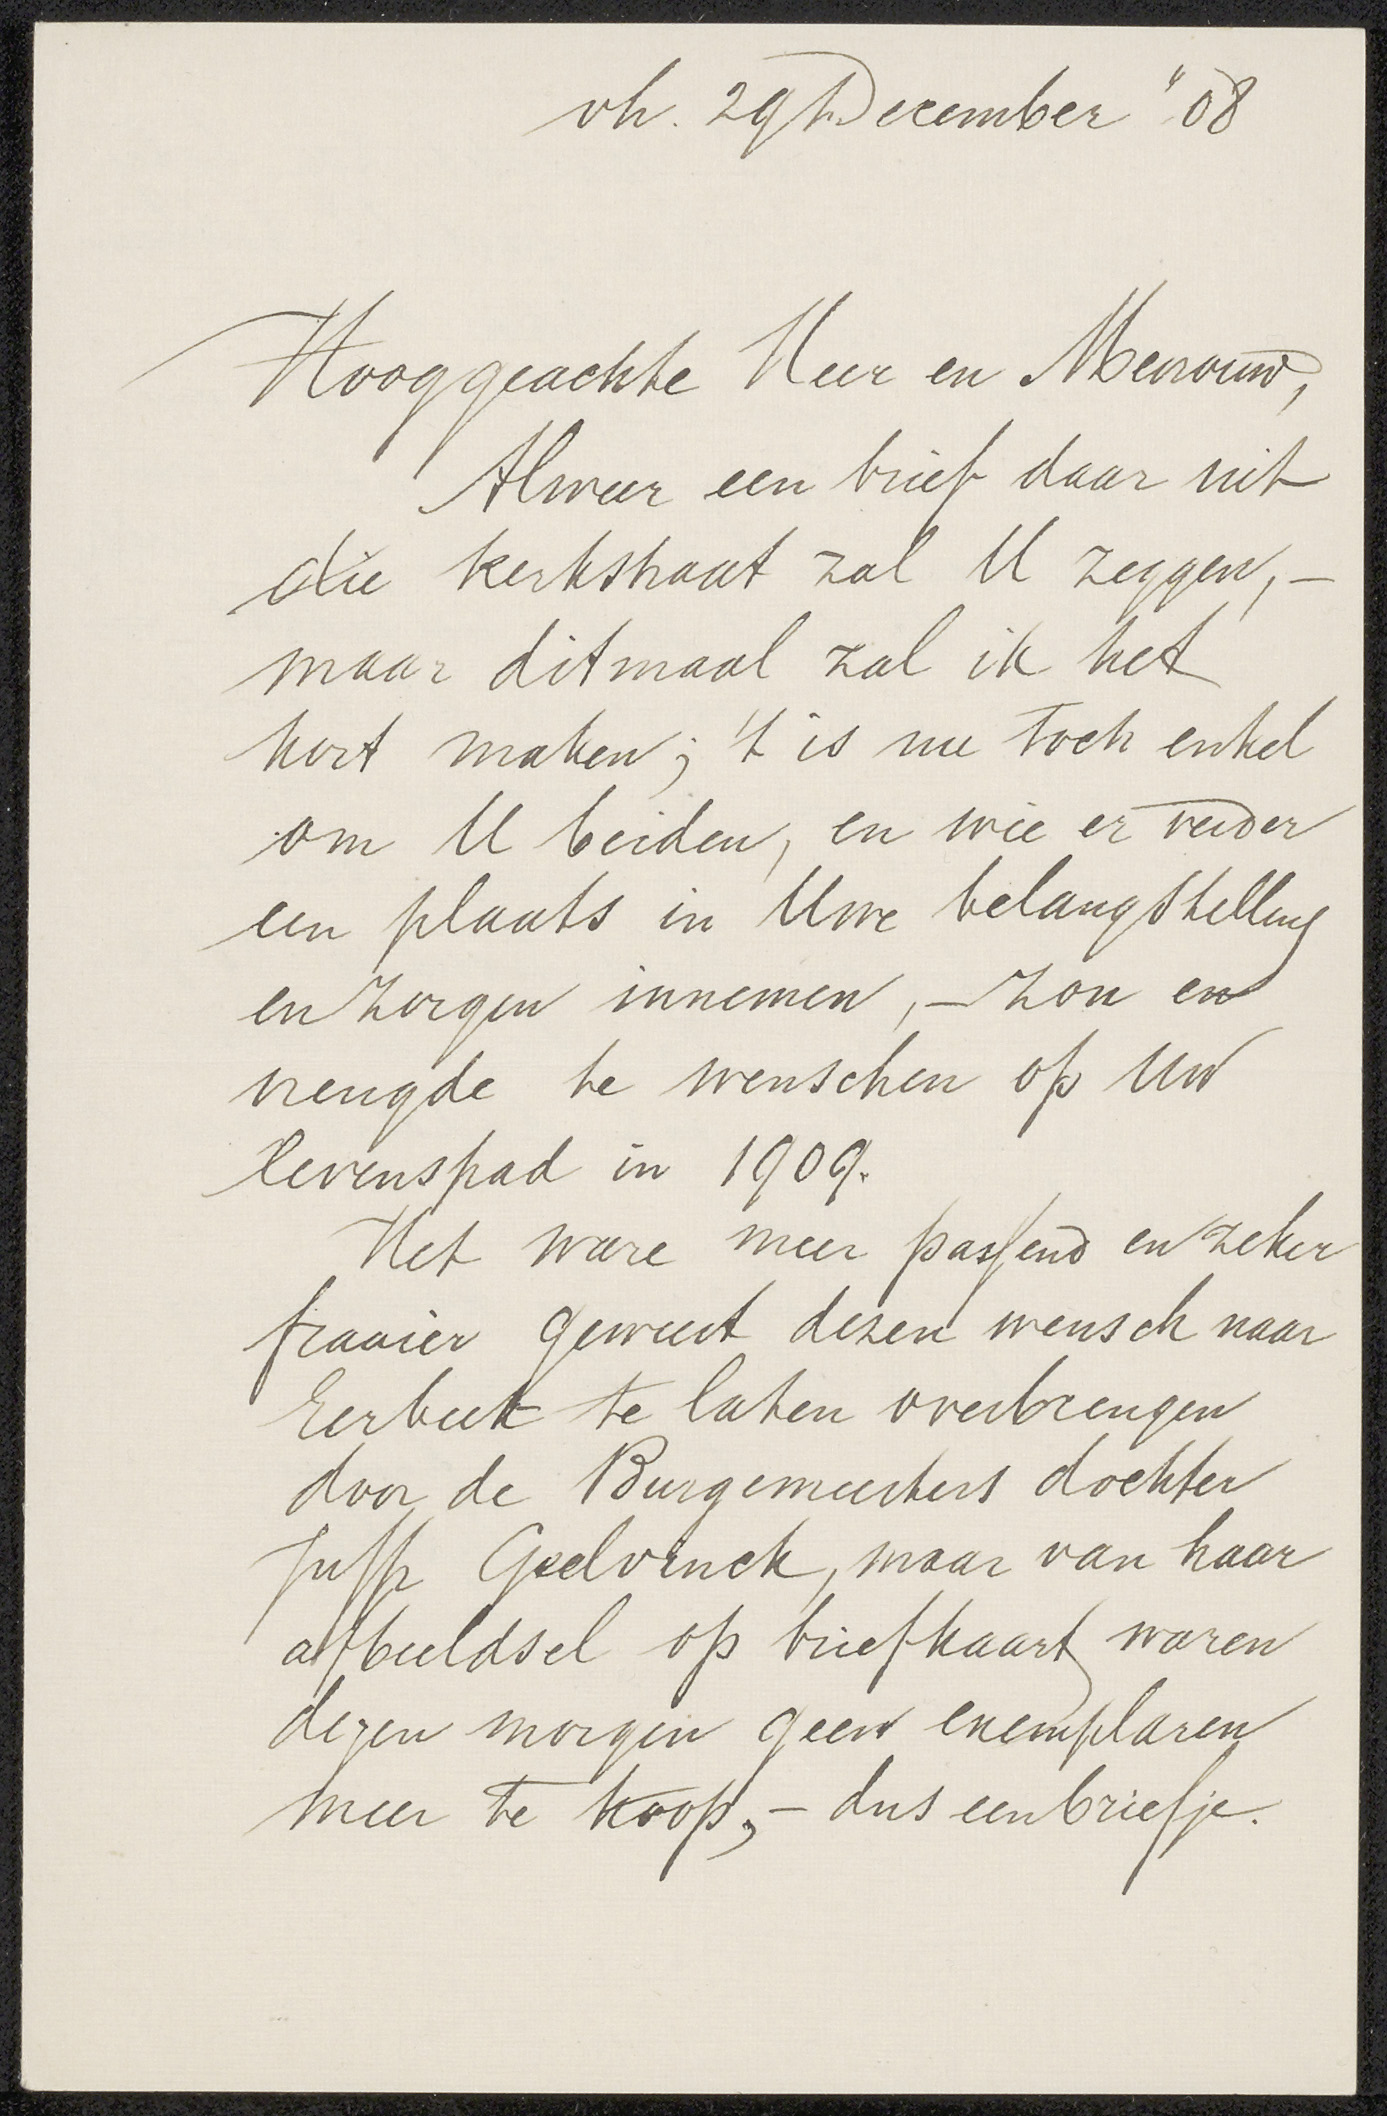 vh. 29 December "08
Hooggeachte Heer en Mevrouw,
Alweer een brief daar uit
die Kerkstraat zal U zeggen, –
maar ditmaal zal ik het
kort maken; 't is nu toch enkel
om U beiden, en wie er verder
een plaats in Uwe belangstelling
en zorgen innemen, – zon en
vreugde te wenschen op Uw
levenspad in 1909.
Het ware meer passend en zeker
fraaier geweest dezen wensch naar
Eerbeek te laten overbrengen
door de Burgemeesters dochter
Juffr Geelvinck, maar van haar
afbeeldsel op briefkaart waren
dezen morgen geen exemplaren
meer te koop, – dus een briefje.